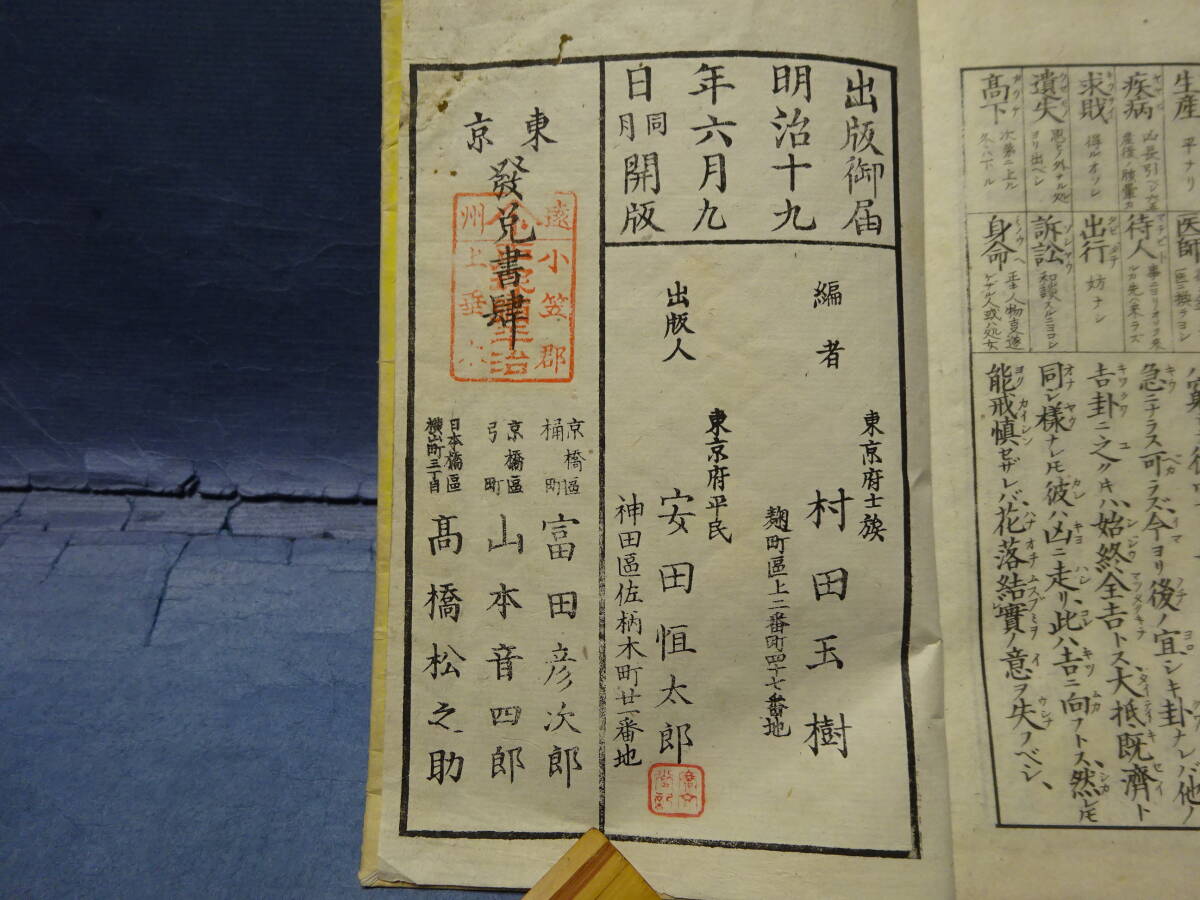 生産 平ナリ
疾病
求財 得ルオソシ
遺失
高下
医師
待人
出行 妨ナシ
訴訟
身命
急ニナラス可ラズ今ヨリ後ノ宜シキ卦ナレバ他ノ
吉卦ニ之
ハ始終全吉トス大抵既済ト
同シ様ナレ𪜈彼ハ凶ニ走リ此ハ吉ニ向フトス然レ𪜈
能戒慎セザレバ花落結實ノ意ヲ失ノベシ、
出版御届
明治十九
年六月九
日同月開版
編者
東京府士族
村田玉樹
麹町區上二番町四十七番地
出版人
東京府平民
安田恒太郎
神田區佐柄木町廿一番地
東京
發兌書肆
京橋區桶町
富田彦次郎
京橋區弓町
山本音四郎
日本橋區横山町三丁目
髙橋松之助
遠
小笠郡
州上垂木